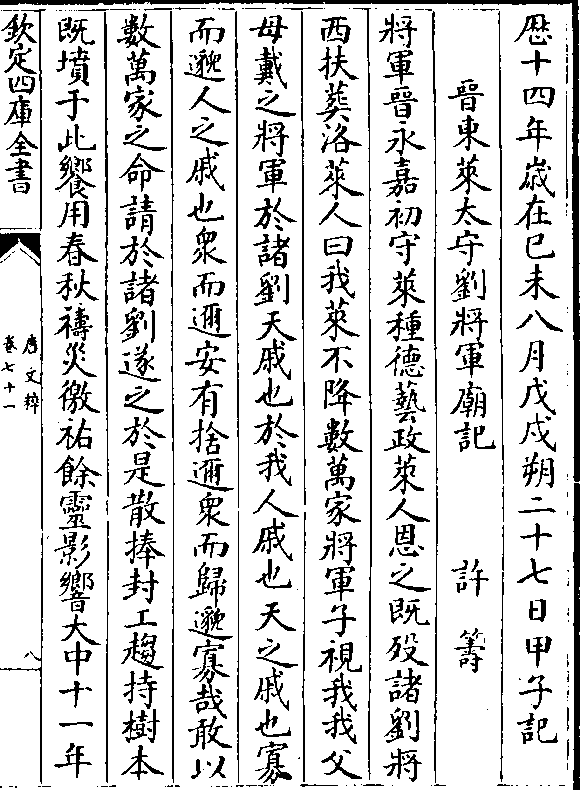 厯十四年歳在已未八月戊戍朔二十七日甲子記
晉東萊太守劉將軍廟記　許籌
將軍晉永嘉初守萊種德藝政萊人恩之既殁諸劉將
西扶葬洛萊人曰我萊不降數萬家將軍子視我我父
母戴之將軍於諸劉天戚也於我人戚也天之戚也寡
而邈人之戚也衆而邇安有捨邇衆而歸邈寡哉敢以
數萬家之命請於諸劉遂之於是散捧封工趨持樹本
既墳于此饗用春秋禱災徼祐餘靈影響大中十一年
欽定四庫全書
唐文粹
卷七十一
八